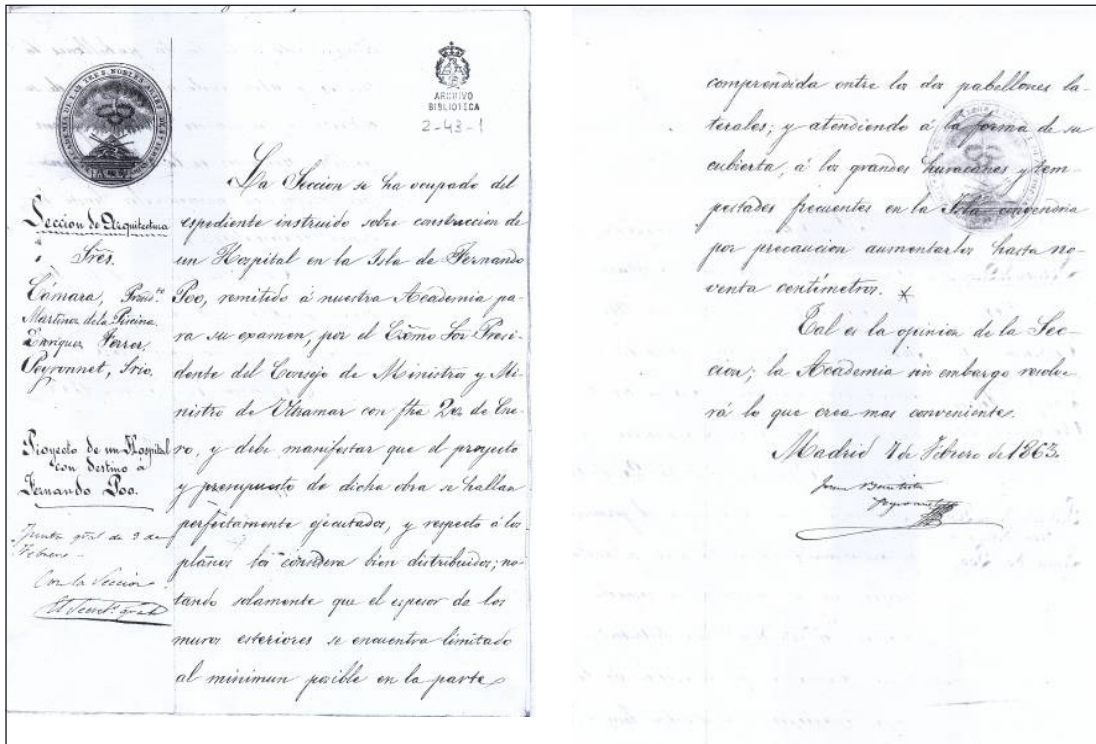 ACADEMIA DE LAS TRES NOBLES ARTES DE S. FERNANDO
ARCHIVO
BIBLIOTECA
2-43-1
Seccion de Arquitectura
Sres.
Cámara, Presid.te
Martinez de la Piscina,
Enriquez Ferrer,
Peyronnet, Srio.
Proyecto de un Hospital
con destino á
Fernando Poo.
Junta gral de 9 de
Febrero
Con la Seccion
El Secret.o gral
La Seccion se ha ocupado del
espediente instruido sobre construccion de
un Hospital en la Isla de Fernando
Poo, remitido á nuestra Academia pa-
ra su examen, por el Exc̃mo Sor Presi-
dente del Consejo de Ministros y Mi-
nistro de Ultramar con fha 2 de Ene-
ro, y debe manifestar que el proyecto
y presupuesto de dicha obra se hallan
perfectamente ejecutados, y respecto á los
planos los considera bien distribuidos; no-
tando solamente que el espesor de los
muros esteriores se encuentra limitado
al minimun posible en la parte
comprendida entre los dos pabellones la-
terales; y atendiendo á la forma de su
cubierta, á los grandes huracanes y tem-
pestades frecuentes en la Isla convendria
por precaucion aumentarlos hasta no-
venta centímetros. *
Tal es la opinion de la Sec-
cion; la Academia sin embargo resolve-
rá lo que crea mas conveniente.
Madrid 7 de Febrero de 1863.
Juan Bautista
Peyronnet